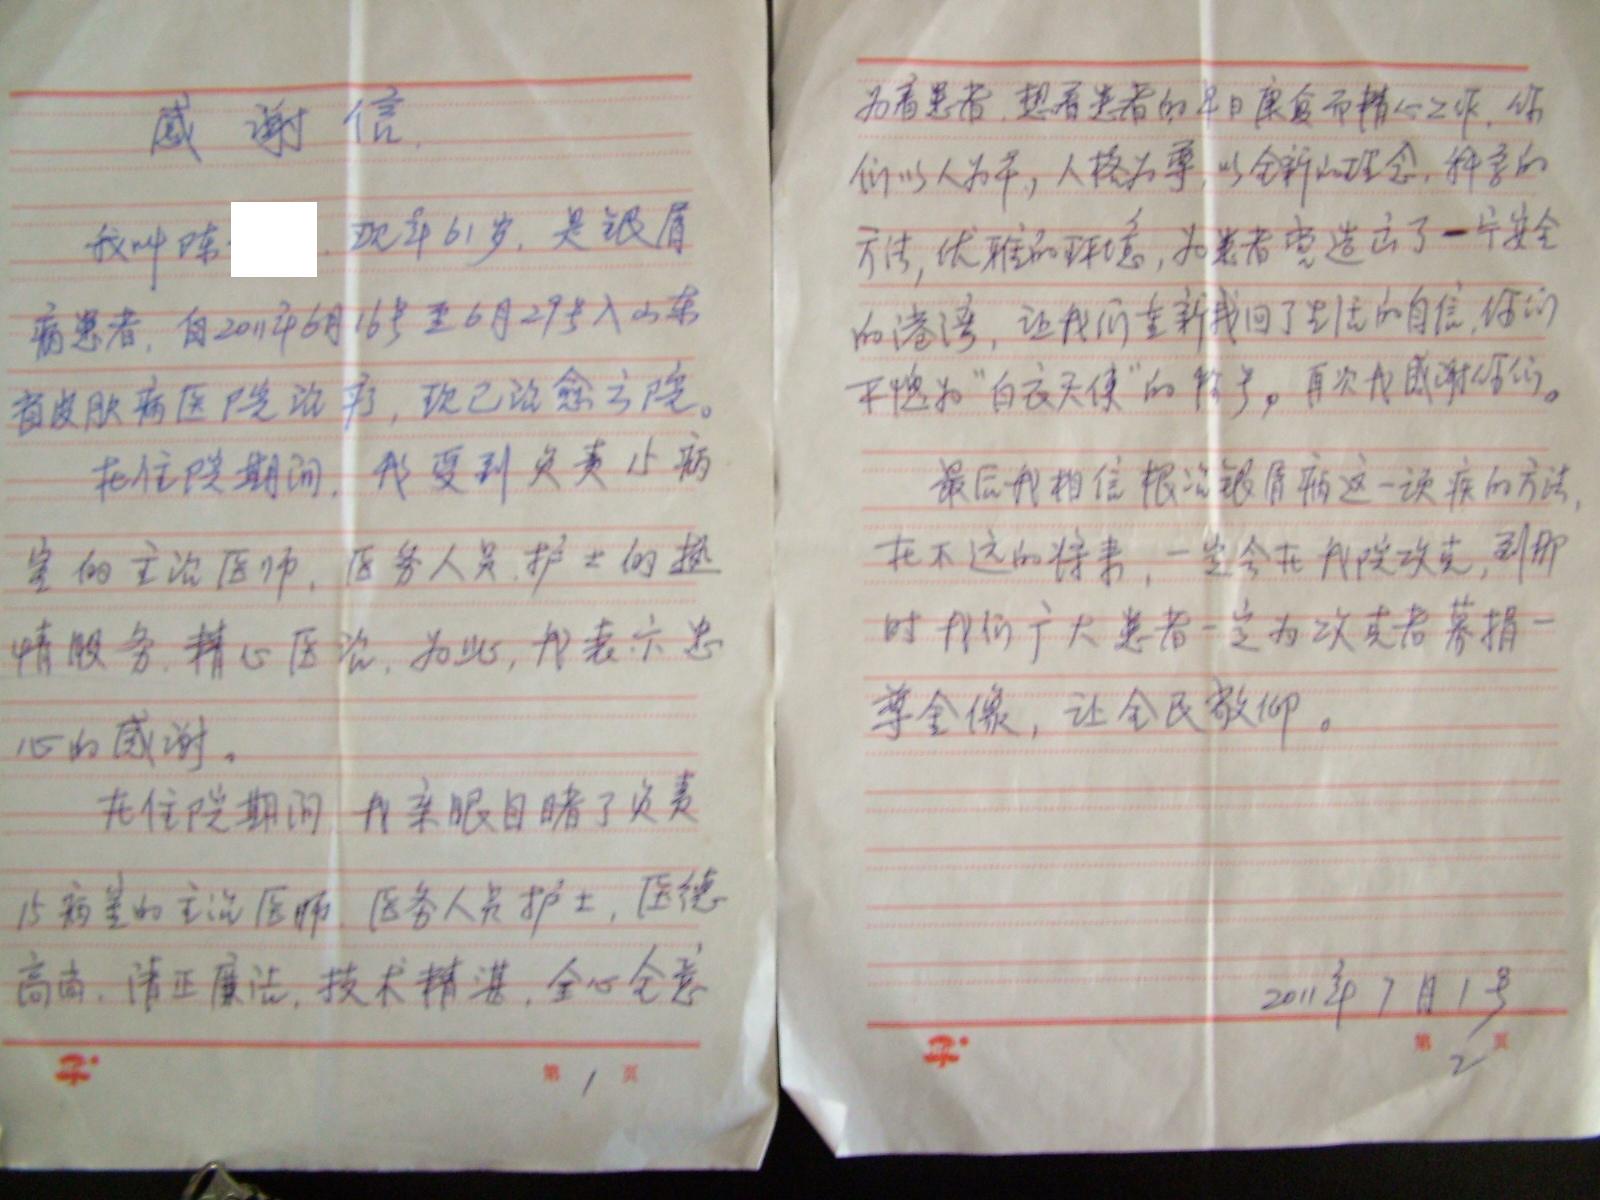 感谢信.
我叫陈 . 现年61岁. 是银屑
病患者. 自2011年6月16号至6月29号入山东
省皮肤病医院治疗, 现已治愈出院。
在住院期间. 我受到负责15病
室的主治医师. 医务人员.护士的热
情服务.精心医治.为此,我表示忠
心的感谢。
在住院期间 我亲眼目睹了负责
15病室的主治医师.医务人员护士, 医德
高尚.清正廉洁.技术精湛.全心全意
第1页
为着患者.想着患者的早日康复而精心工作.你
们以人为本,人格为尊.以全新的理念.科学的
方法,优雅的环境,为患者营造出了一片安全
的港湾, 让我们重新找回了生活的自信.你们
不愧为“白衣天使”的称号。再次我感谢你们。
最后我相信根治银屑病这一顽疾的方法,
在不远的将来,一定会在我院攻克,到那
时我们广大患者一定为攻克者募捐一
尊金像,让全民敬仰。
2011年7月1号
第2页